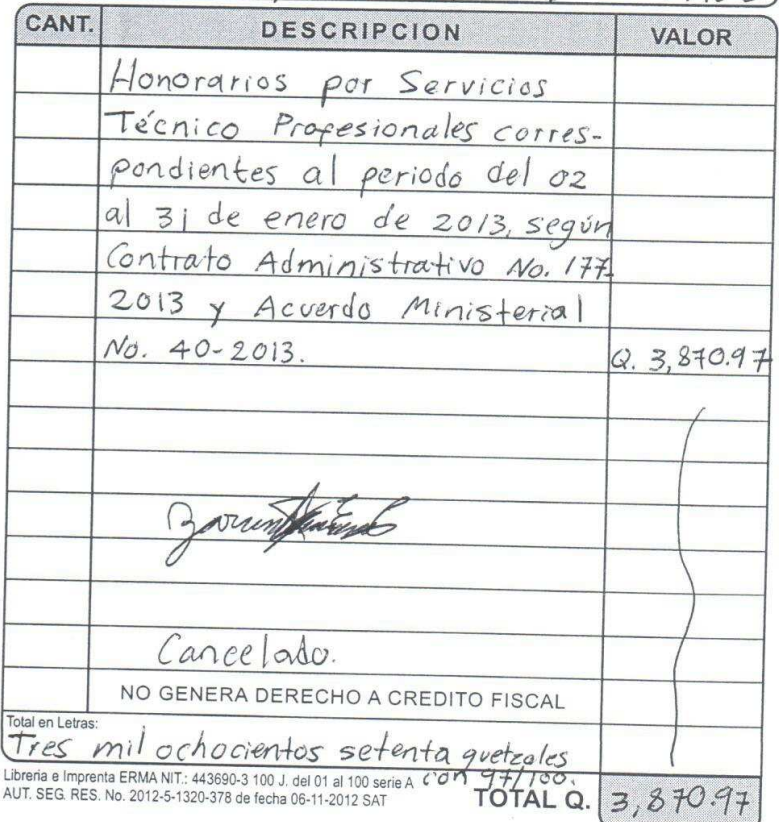 CANT. DESCRIPCION VALOR
Honorarios por Servicios
Técnico Profesionales corres-
pondientes al periodo del 02
al 31 de enero de 2013, según
Contrato Administrativo No. 177-
2013 y Acuerdo Ministerial
No. 40-2013. Q. 3,870.97
Cancelado.
NO GENERA DERECHO A CREDITO FISCAL
Total en Letras:
Tres mil ochocientos setenta quetzales
con 97/100.
Libreria e Imprenta ERMA NIT.: 443690-3 100 J. del 01 al 100 serie A
AUT. SEG. RES. No. 2012-5-1320-378 de fecha 06-11-2012 SAT
TOTAL Q. 3,870.97